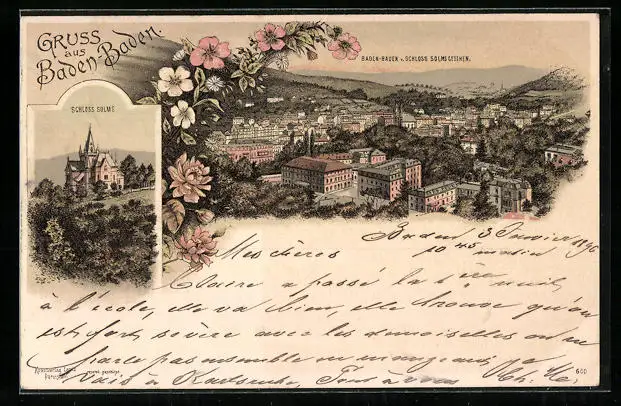 GRUSS
aus
Baden-Baden.
BADEN-BADEN v. SCHLOSS SOLMS GESEHEN.
SCHLOSS SOLMS
Baden 3 Janvier 1896
10 45 matin
Mes chères
Claire a passé la 1ère nuit
à l'école, elle va bien, elle trouve qu'on
est fort sévère avec les demoiselles on ne
parle pas ensemble en mangeant, je
vais à Karlsruhe, Tout à vous Ch.
600